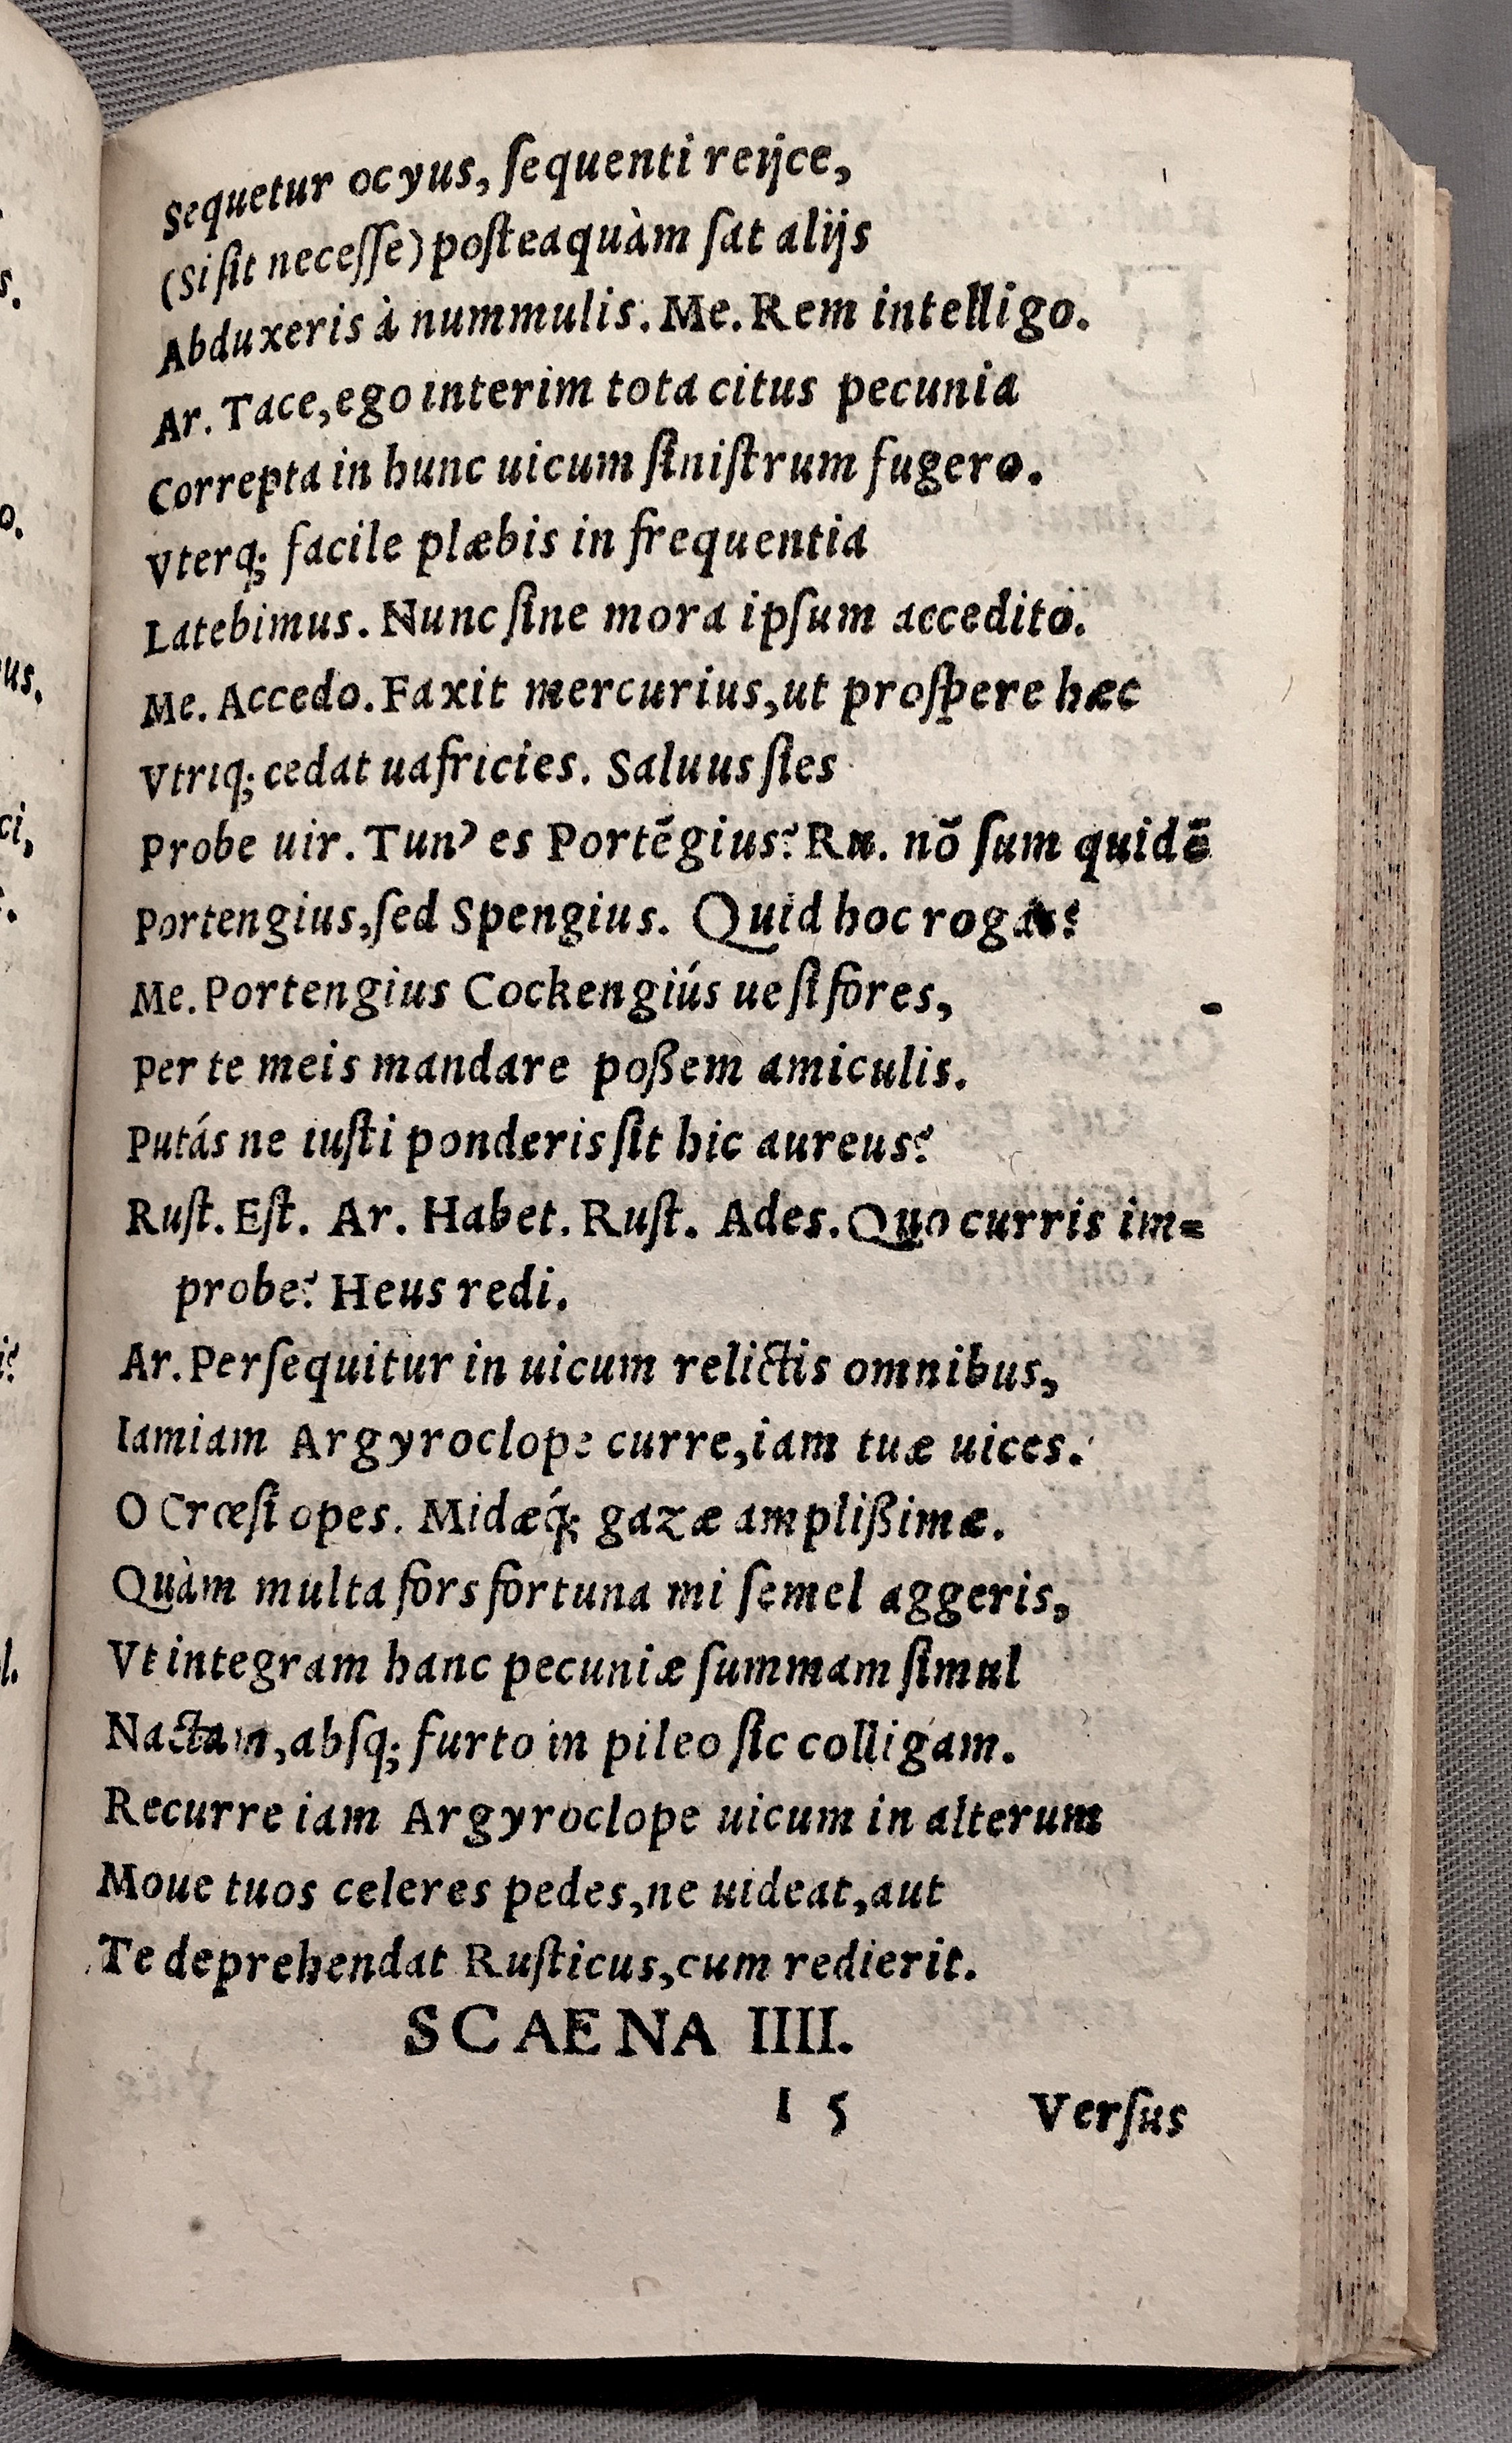 Sequetur ocyus, ſequenti reijce,
(Si ſit neceſſe) poſteaquàm ſat alijs
Abduxeris à nummulis. Me. Rem intelligo.
Ar. Tace, ego interim tota citus pecunia
Correpta in hunc uicum ſiniſtrum fugero.
Vterq; facile plæbis in frequentia
Latebimus. Nunc ſine mora ipſum accedito.
Me. Accedo. Faxit mercurius, ut proſpere hæc
Vtriq; cedat uafricies. Saluus ſies
Probe uir. Tun' es Portēgius? Ru. nō ſum quidē
Portengius, ſed Spengius. Quid hoc rogas?
Me. Portengius Cockengiús ue ſi fores,
Per te meis mandare poßem amiculis.
Putás ne iuſti ponderis ſit hic aureus?
Ruſt. Eſt. Ar. Habet. Ruſt. Ades. Quo curris im=
probe? Heus redi.
Ar. Perſequitur in uicum relictis omnibus,
Iamiam Argyroclope curre, iam tuæ uices.
O Crœſi opes. Midæq́; gazæ amplißimæ.
Quàm multa fors fortuna mi ſemel aggeris,
Vt integram hanc pecuniæ ſummam ſimul
Nactam, abſq; furto in pileo ſic colligam.
Recurre iam Argyroclope uicum in alterum
Moue tuos celeres pedes, ne uideat, aut
Te deprehendat Ruſticus, cum redierit.
SCAENA IIII.
I 5 Verſus